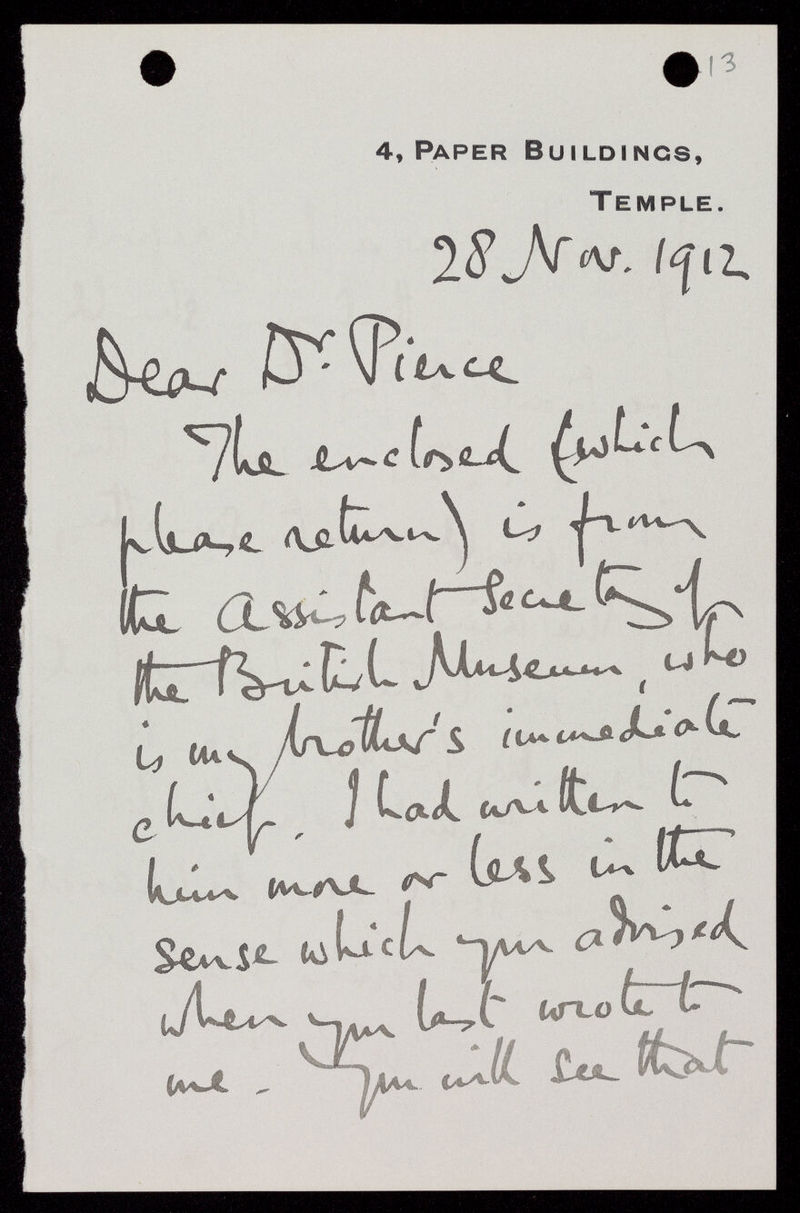 13
4, PAPER BUILDINGS,
TEMPLE.
28 Nov. 1912
Dear Dr. Pierce
The enclosed (which
please return) is from
the Assistant Secretary of
the British Museum, who
is my brother's immediate
chief. I had written to
him more or less in the
sense which you advised
when you last wrote to
me - You will see that